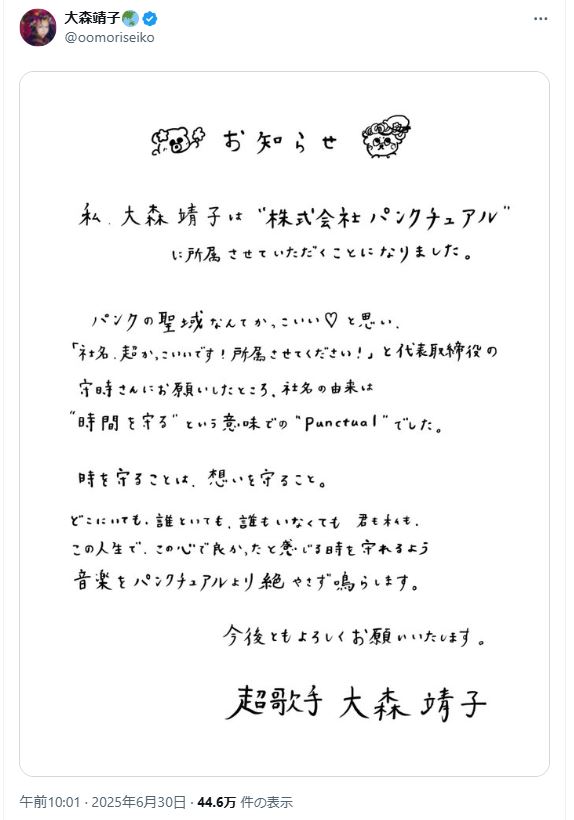 大森靖子
@oomoriseiko
お知らせ
私、大森靖子は"株式会社パンクチュアル"
に所属させていただくことになりました。
パンクの聖域なんてかっこいい♡と思い、
「社名、超かっこいいです!所属させてください!」と代表取締役の
守時さんにお願いしたところ、社名の由来は
"時間を守る"という意味での"Punctual"でした。
時を守ることは、想いを守ること。
どこにいても、誰といても、誰もいなくても 君も私も、
この人生で、この心で良かったと感じる時を守れるよう
音楽をパンクチュアルより絶やさず鳴らします。
今後ともよろしくお願いいたします。
超歌手 大森靖子
午前10:01 · 2025年6月30日 · 44.6万 件の表示